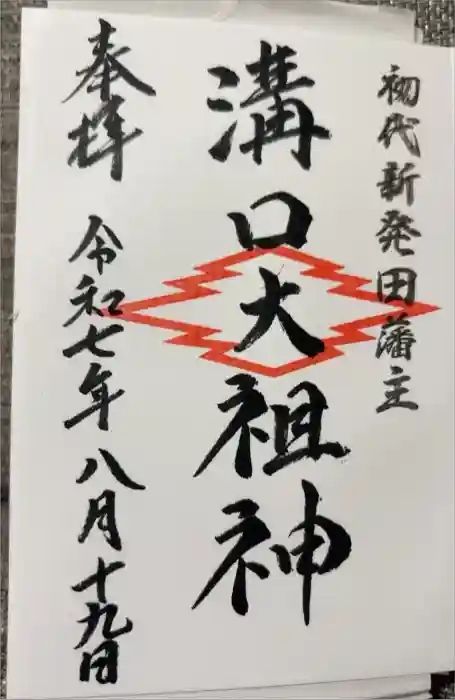 初代新発田藩主
溝口大祖神
奉拝
令和七年八月十九日